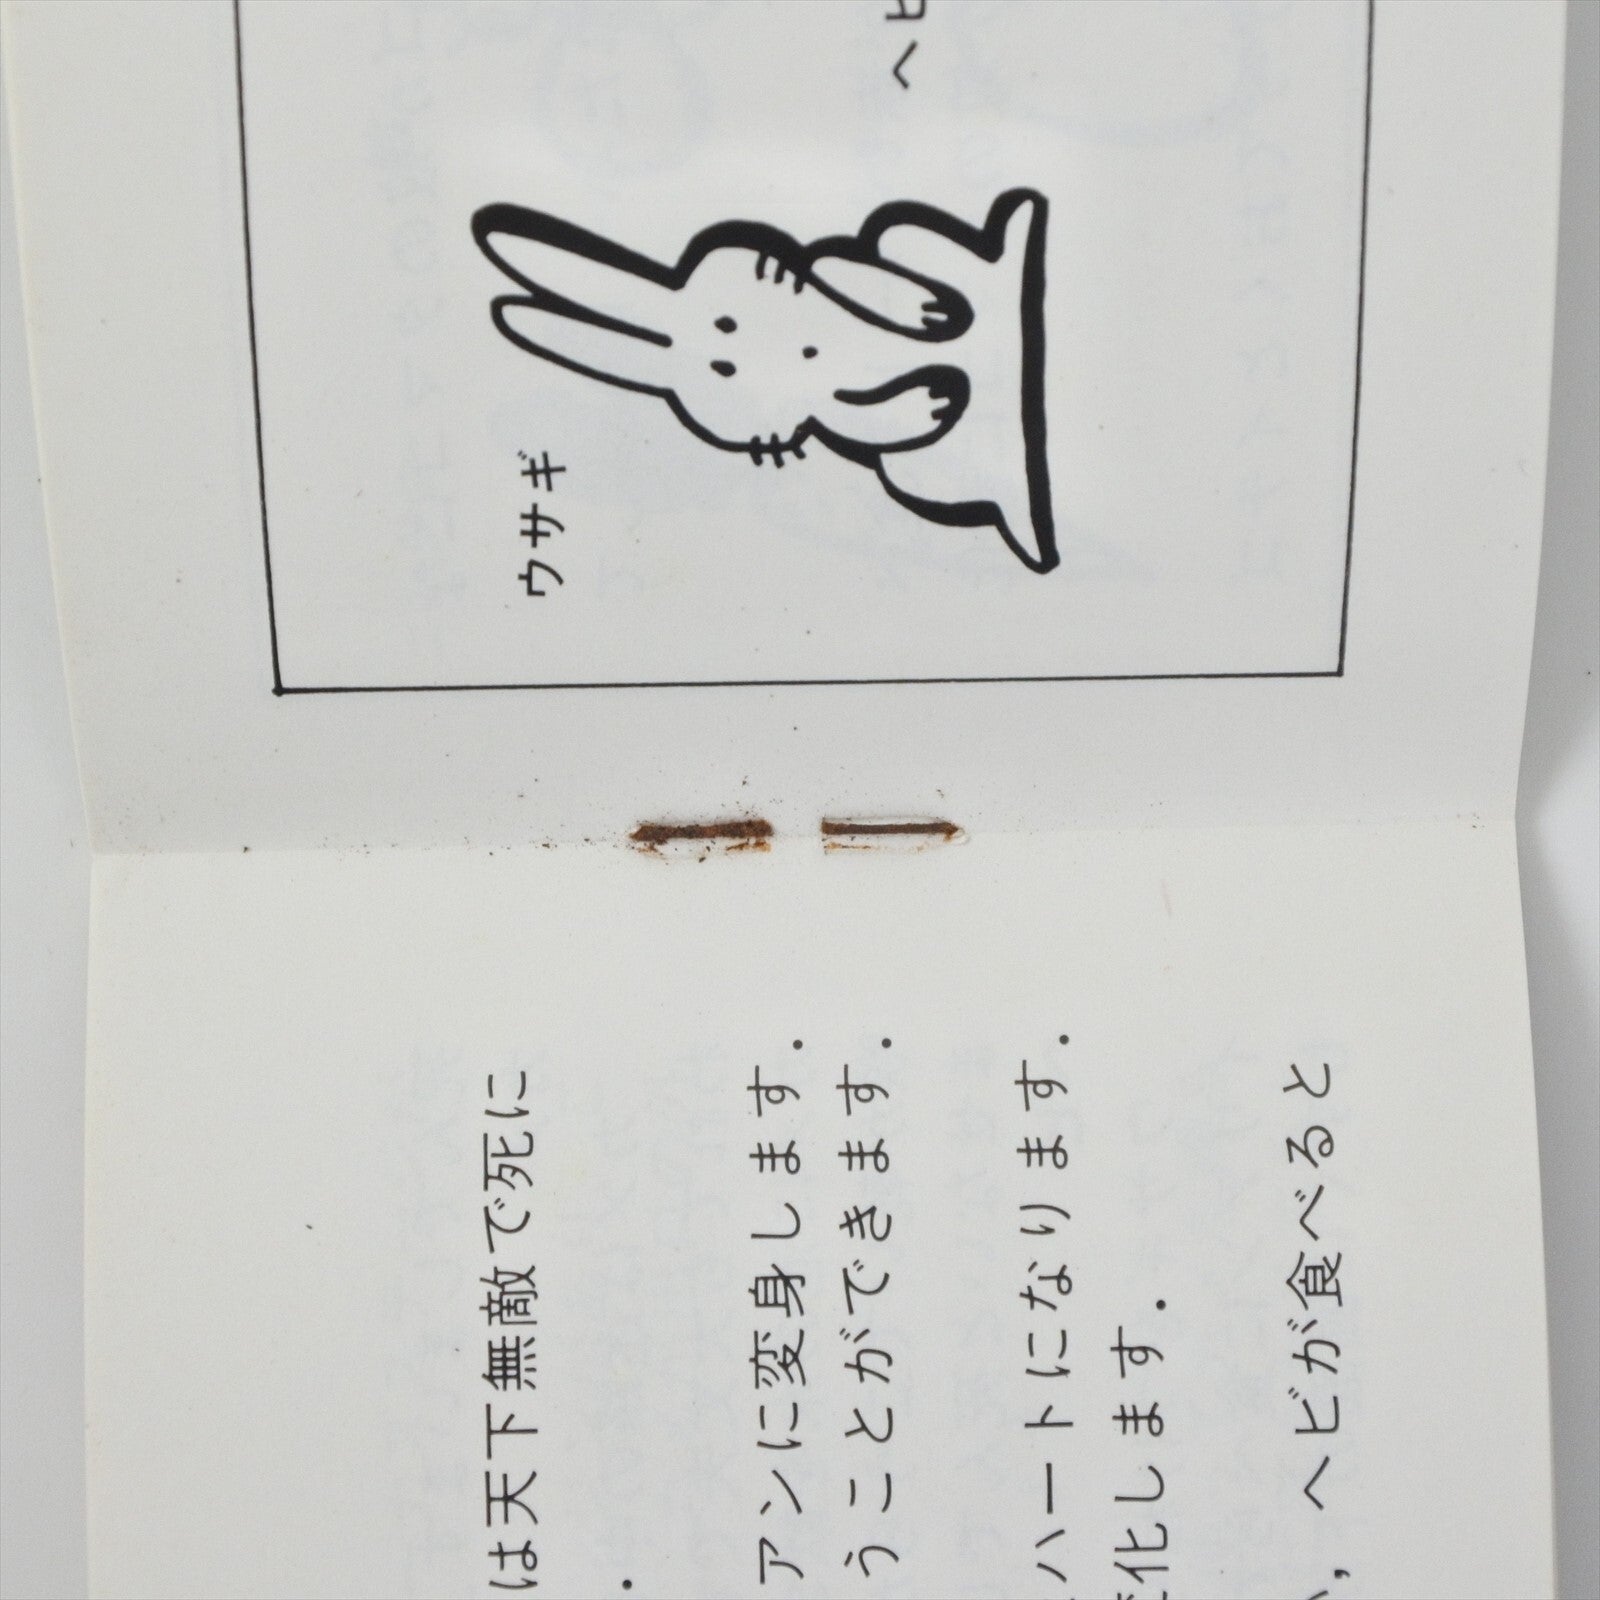 ウサギ
ヘビ
は天下無敵で死に
.
アンに変身します.
うことができます.
ハートになります.
変化します.
, ヘビが食べると